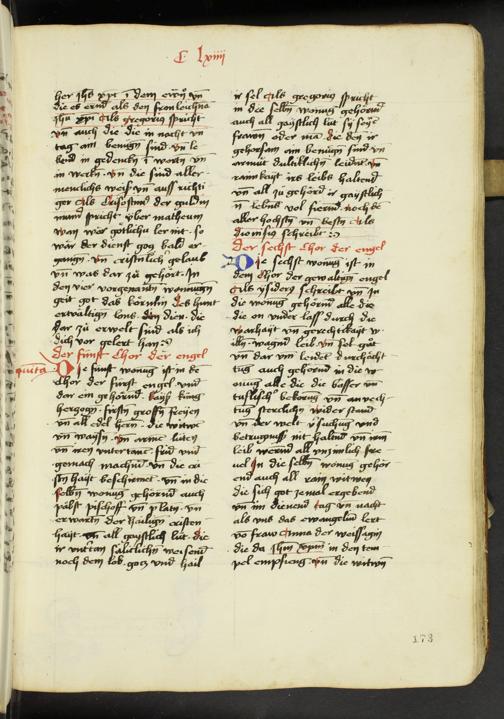 C lxiiij
her jhs xpt ī dem ewẽ vñ
die es ernd als den fronleichnā
jhu xpi Als gregorius spricht
vñ auch die die in nacht vñ
tag am benugñ sind vñ le
bend in gedenckñ ī wortñ vñ
in werkñ vñ die sind aller
menclichs weiß vñ auff richti
ger Als Crisostimꝰ der guldin
mund spricht vber matheum
wan wāz gotlichū lernt so
wār der dienst gog bald er
gangñ vñ cristnlich gelaub
vñ was dar zū gehort In
den vier vorgenantñ wonnugñ
geit got das körnlin des hunt
ertvaltigñ lons den dien die
dar zū erwelt sind als ich
dich vor gelert han
Der funft Chor der engel
quinta
Die funft wonug ist in ke
Chor der furst engel vnd
dar ein gehornd kayß küng
hertzogñ firstñ grossñ freyen
vñ all edel hern die witwē
vñ waysñ vñ armē lütten
vñ iren vntertanē frid vnd
gemach machnd vñ die cri
stñ hayt beschirmet vñ in die
selbñ wonug gehornd auch
pabst pischoff vñ platñ vñ
erwartñ der hailigñ cristen
hayt vñ all gaystlich lüt die
ir vntertan sälichlichñ weisend
noch dem lob gotz vnd hail
ir sel Als gregorius spricht
in die selbñ wonug gehornd
auch all gaystlich lüt sy seyē
frawen oder mā die den ir
gehorsam am benugñ sind vñ
armūt dultiklichñ leident vñ
rainikayt irs leibs haltend
vñ all zū gehord ir gaystlich
ñ lebns vol fiernd noch dē
aller hochstñ vñ bestñ Als
dionisiꝰ schreibt
Der sechst Chor der engel
Die sechst wonug ist in
dem Chor der gewaltigñ engel
Als ysiderꝰ schreibt vñ in
die wonug gehornd alle die
die on vnder lass durch die
warhayt vñ gerechtikayt w
illn wagnd leib vñ sel gūt
vñ dar vm leidet durchächt
tug auch gehornd in die w
onug alle die die böser vñ
tuflischꝰ bekorug vñ anvech
tug sterclichñ wider stand
vñ der welt v̈suchug vnd
betrugnuss nit haltnd vñ irem
leib wernd all vnzimlich fre
wel In die selbñ wonug gehör
end auch all rain witwen
die sich got zemal ergebend
vñ im dienend tag vñ nacht
als vns das ewangelium lert
vō fraw Anna der weissagin
die da jhm xpm in den tem
pel empfieng vñ die witwñ
173